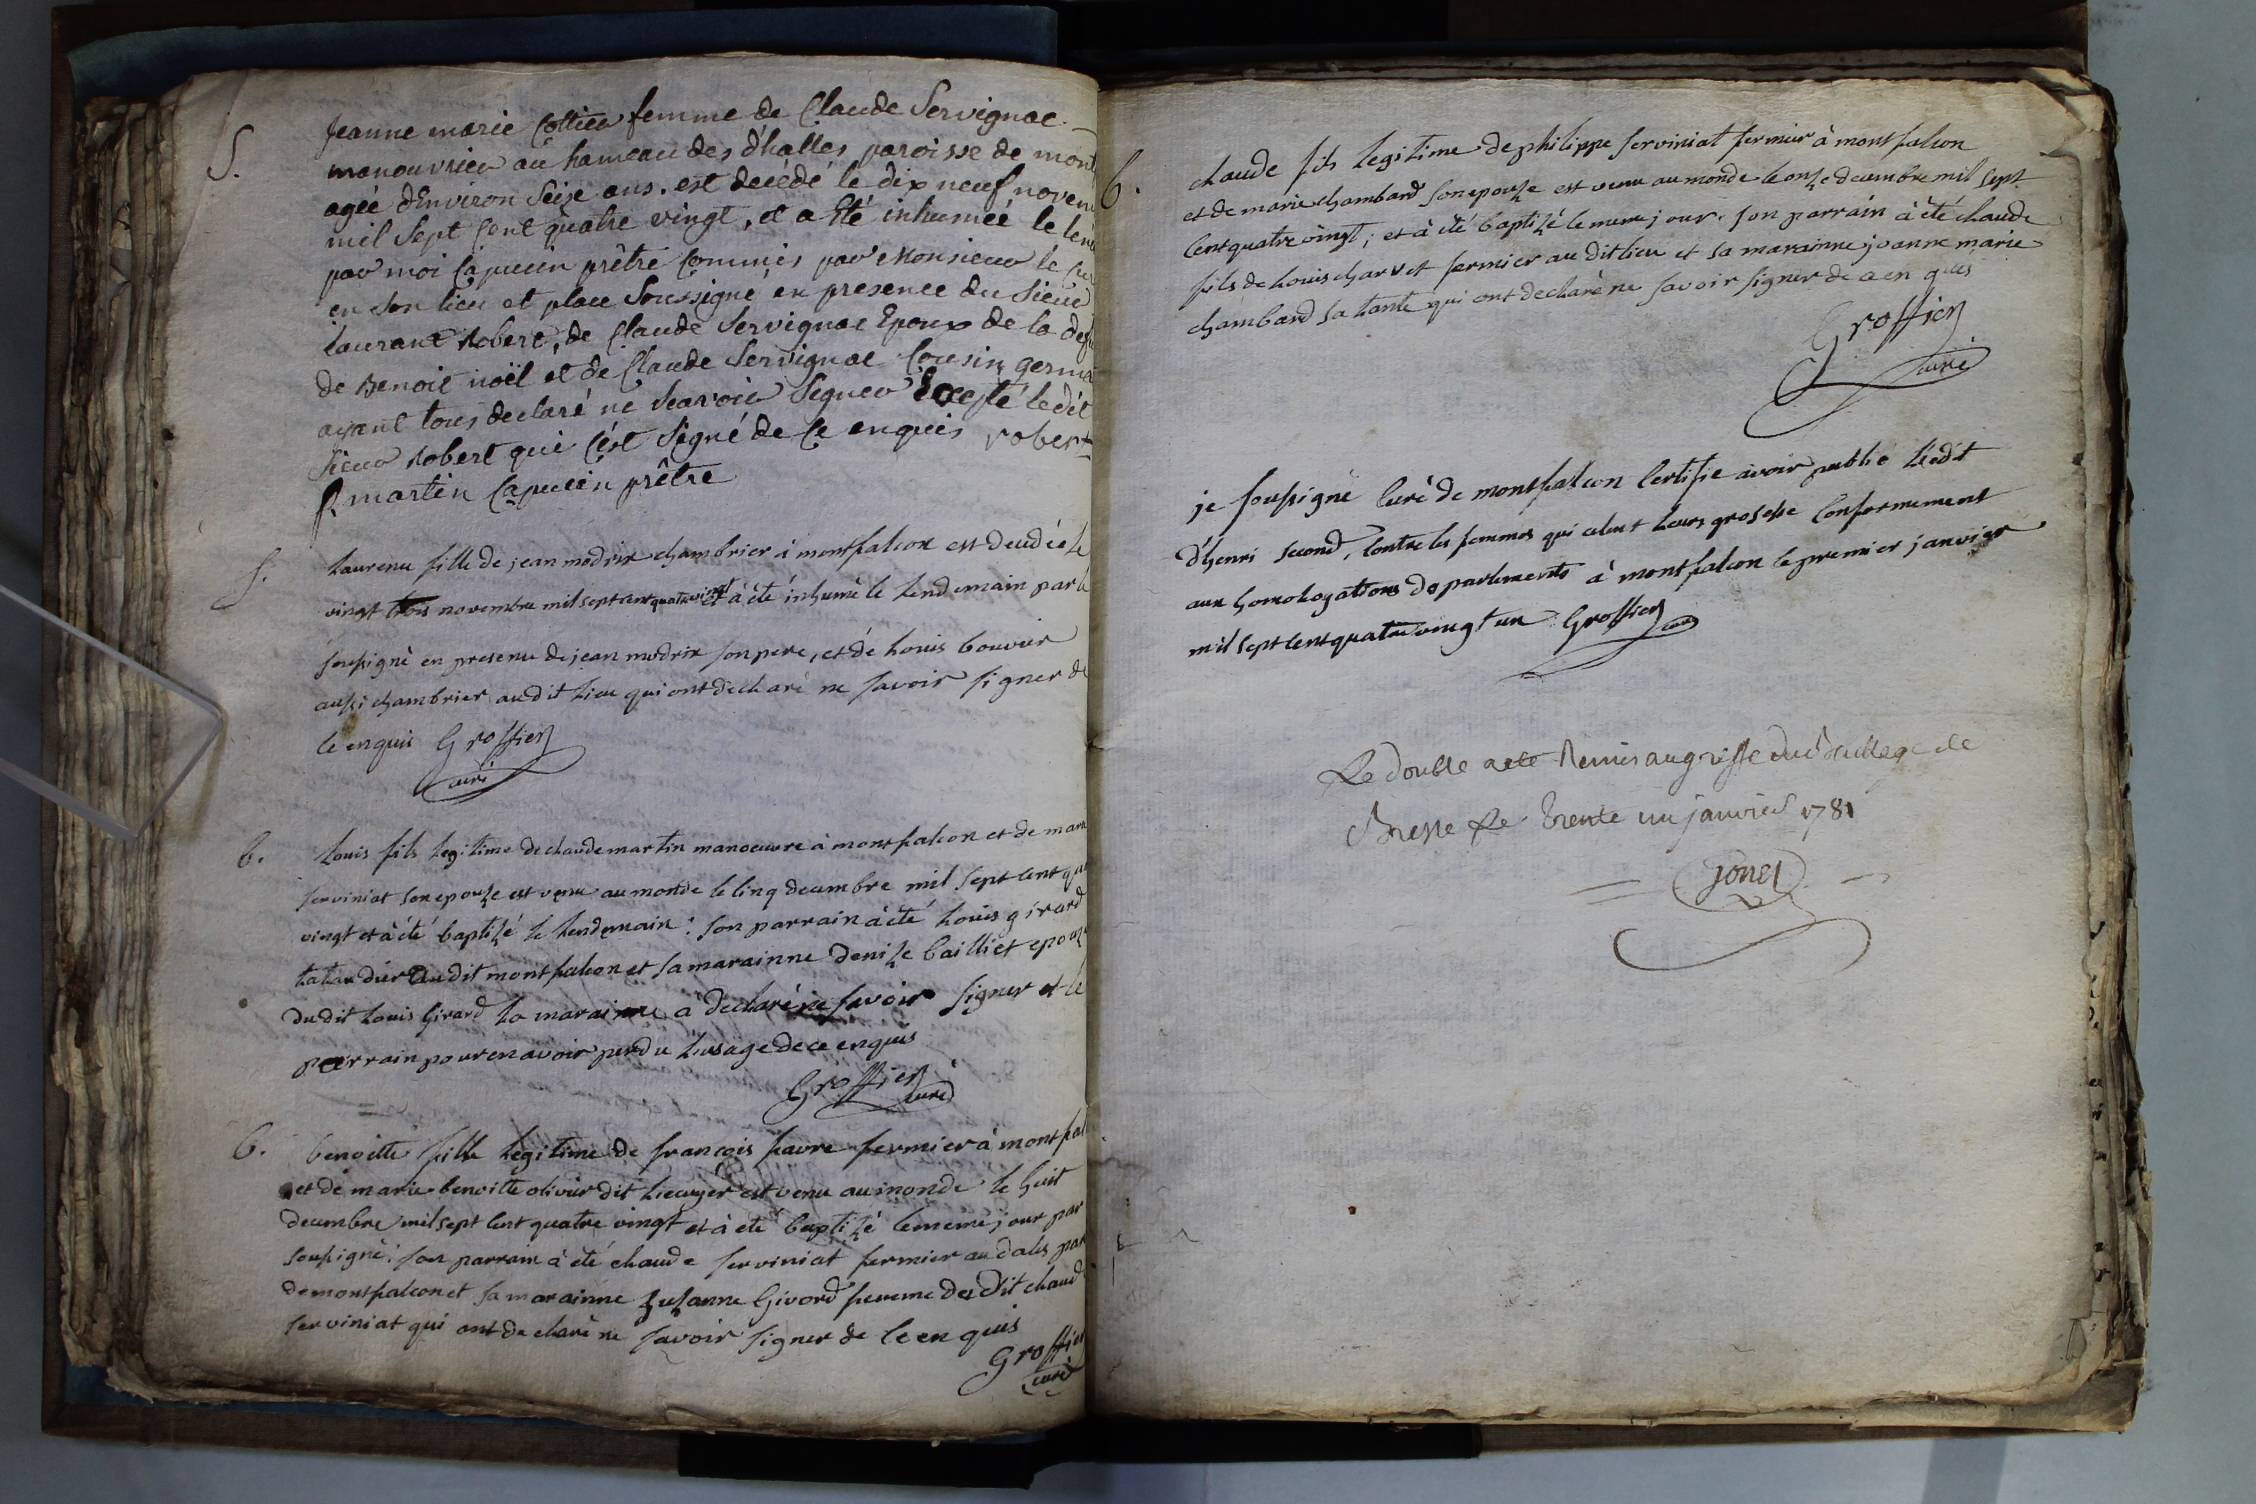 S.
Jeanne marie Collieu femme de Claude Servignac
manouvrier au hameau des d'halles paroisse de mont
agée d'Environ Seise ans. est décédé le dix neuf novem
mil Sept Cent quatre vingt, et a Eté inhumeé le len
par moi Capucin prêtre Commis par Monsieur le cu
en Son lieu et place Soussigné en presence du Sieur
laurant Robert, de Claude Servignac Epoux de la def
de Benoit noël et de Claude Servignac Cousin germa
ayant tous declaré ne Scavoir Signer Excepté ledit
Sieur Robert qui c'est Signé de Ce enquis robert
P. martin Capucin prêtre
S.
Laurence fille de jean modrin chambrier à montfalcon est decedée le
vingt trois novembre mil sept cent quatre vingt et à été inhumè le lendemain par le
soussignè en presence de jean modrin son pere, et de Louis bouvier
aussi chambrier au dit lieu qui ont declarè ne savoir signer de
ce enquis Groffier
curé
b.
Louis fils legitime de claude martin manoeuvre à montfalcon et de marie
serviniat son epouze est venu au monde le cinq decembre mil sept cent qua
vingt et à été baptizé le lendemain : son parrain à été Louis girard
du dit montfalcon et sa marainne denize bailliet epouze
du dit Louis Girard la marainne a declaré ne savoir signer et le
parrain pour en avoir perdu l'usage de ce enquis
Groffier
curé
b.
benoitte fille legitime de françois favre fermier à montfal
et de marie benoitte olivier dit L'ecuyer est venu au monde le huit
decembre mil sept cent quatre vingt et à été baptizé le meme jour par
soussignè : son parrain à été claude serviniat fermier au dales par
de montfalcon et sa marainne suzanne Givord femme du dit claude
serviniat qui ont declarè ne savoir signer de ce en quis
Groffier
curé
b.
claude fils legitime de philippe serviniat fermier à montfalcon
et de marie chambard son epouze est venu au monde le onze decembre mil sept
cent quatre vingt ; et à été baptizé le meme jour. son parrain à été claude
fils de Louis charvet fermier au dit lieu et sa marainne jeanne marie
chambard sa tante qui ont declarè ne savoir signer de ce en quis
Groffier
curé
je soussigné Curé de montfalcon Certifie avoir publié L'edit
d'henri second, Contre les femmes qui celent leurs grosesse Conformement
aux homologations de parlements à montfalcon le premier janvier
mil sept cent quatre vingt un Groffier
curé
Le double acté Remis au greffe du Bailliage de
Bresse le trente un janvier 1781